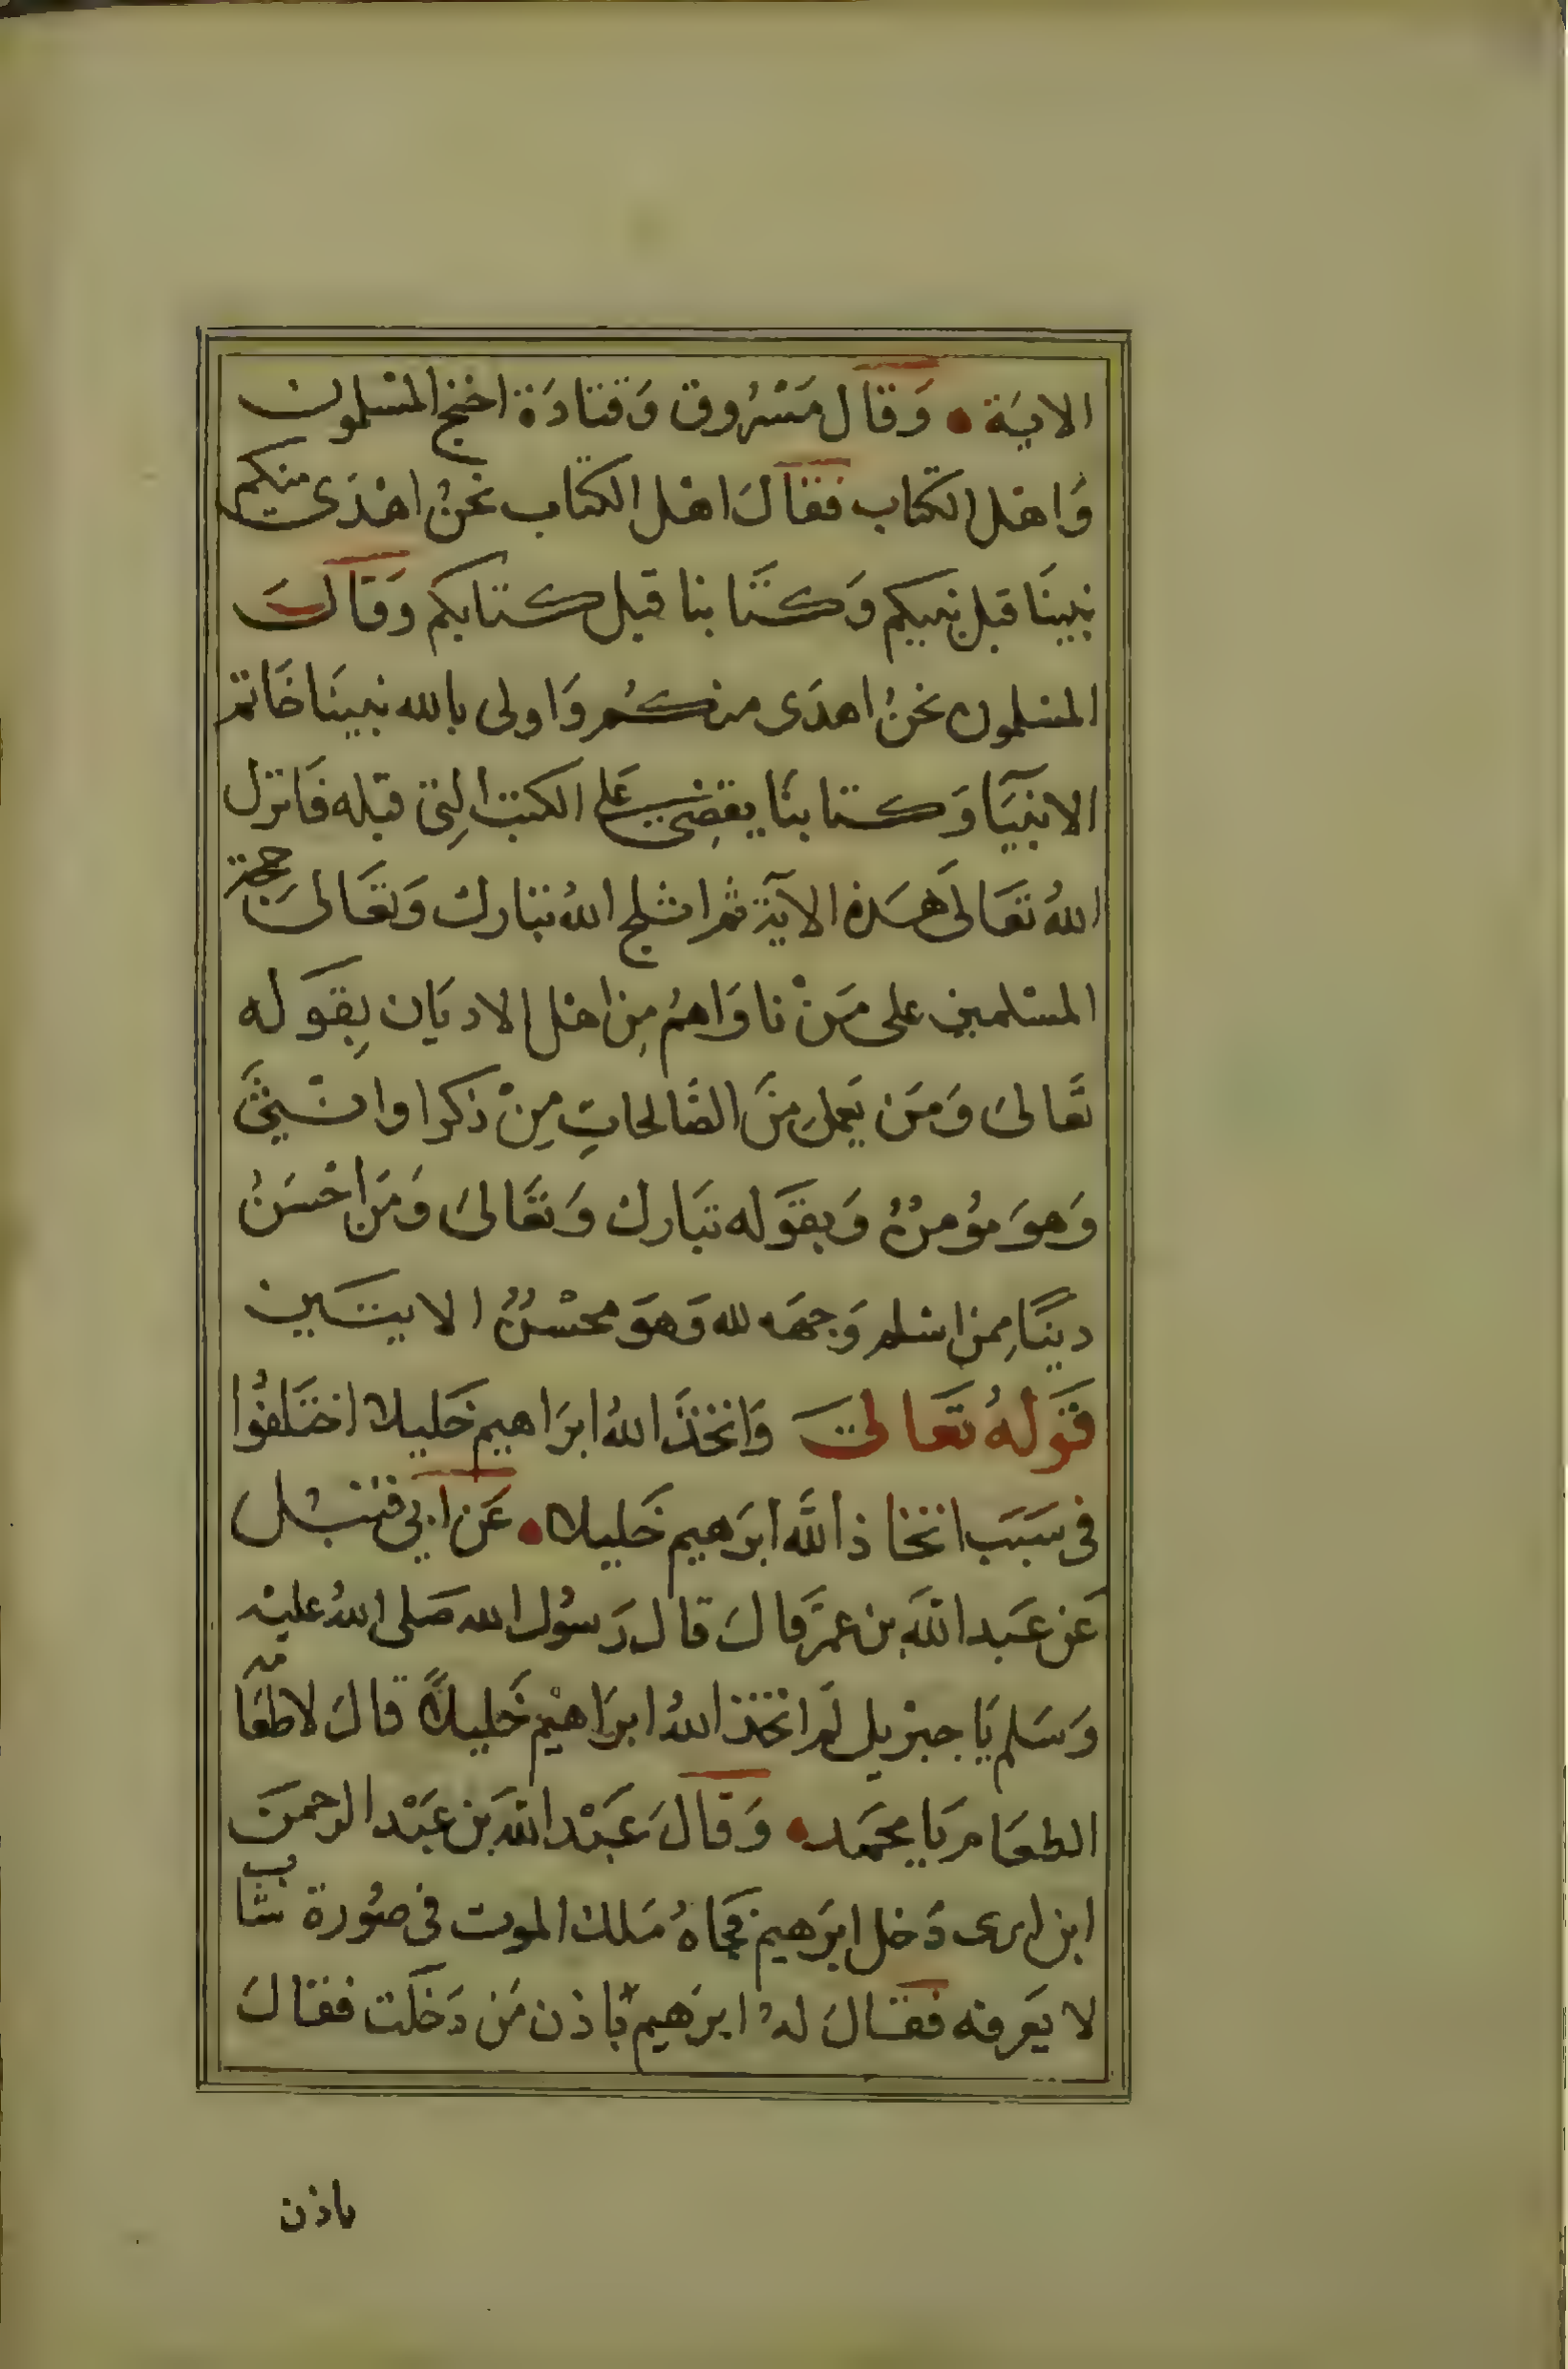 الاية • وَقَال مَسْرُوق وَقتادَة احتج المسْلمون
وَاهْل الكتاب فقال اهْل الكتاب نحنُ اهْدَى منكم
نبينَا قبل نبيكم وَكتَابنا قبل كتابكم وَقَالَ
المسلمون نحنُ اهدَى منكُم وَاولى بالله نبينَا خَاتم
الانبيَا وَكتابنَا يقضِي عَلى الكتب التِى قبله فَانزل
اللهُ تعَالَى هَذه الآية ثم افلج اللهُ تبارك وَتعَالىَ حجة
المسْلمين على مَنْ ناوَاهم مِن اهْل الاديَان بِقَوله
تعَالىَ وَمَن يَعمل مِنَ الصَالحاتِ مِنْ ذكر او انثى
وَهوَ مؤمنٌ وَبقَوله تبَارك وَتعَالىَ وَمَن احْسَنُ
دينًا مِمن اسْلم وَجهَه لله وَهوَ محْسنٌ الايتَين
قَولهُ تَعَالىَ وَاتخذَ اللهُ ابرَاهيم خَليلا اختَلفُوا
فى سَبَب اتخاذ اللَّه ابرَهيم خَليلا • عَن ابى قنبل
عَن عَبد اللَّهِ بن عمرَ قالَ قال رَسُول الله صَلى اللهُ عليْه
وَسَلم يَا جبريل لم اتخذ اللهُ ابرَاهيْم خَليلاً قالَ لاطعَامه
الطعَام يَا محمَد • وَقَالَ عَبْد اللَّه بْن عَبْد الرحمنَ
ابن ابرى دَخل ابرَهيم فجاهُ مَلك الموت فى صُورة شاب
لا يَعرفه فقال لهُ ابرَهيم باذن مَن دَخلَت فقالَ
باذن